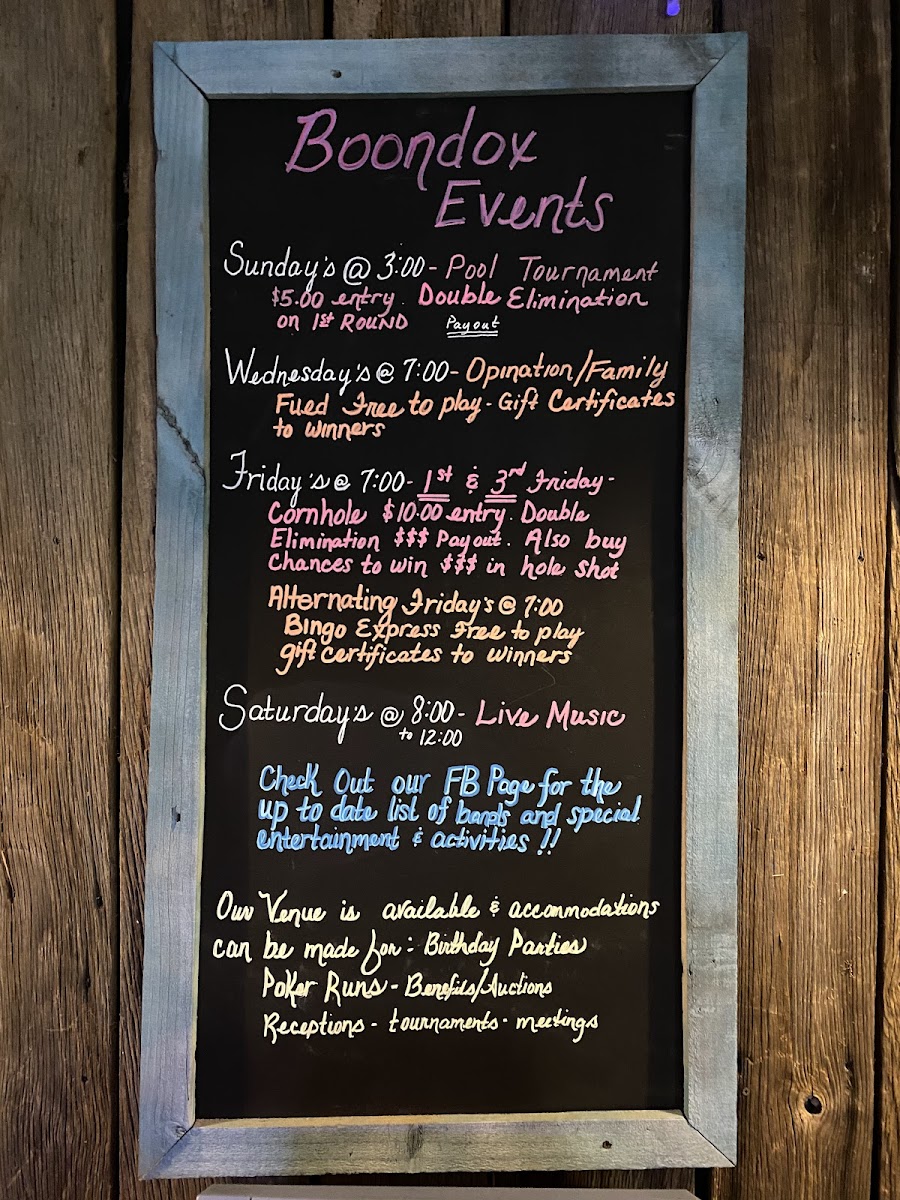 Boondox
Events
Sunday's @ 3:00 - Pool Tournament
$5.00 entry. Double Elimination
on 1st ROUND Payout
Wednesday's @ 7:00 - Opination/Family
Fued Free to play - Gift Certificates
to winners
Friday's @ 7:00 - 1st & 3rd Friday -
Cornhole $10.00 entry. Double
Elimination $$$ Payout. Also buy
Chances to win $$$ in hole shot
Alternating Friday's @ 7:00
Bingo Express Free to play
gift certificates to winners
Saturday's @ 8:00 - Live Music
to 12:00
Check Out our FB Page for the
up to date list of bands and special
entertainment & activities !!
Our Venue is available & accommodations
can be made for: Birthday Parties
Poker Runs - Benefits/Auctions
Receptions - tournaments - meetings